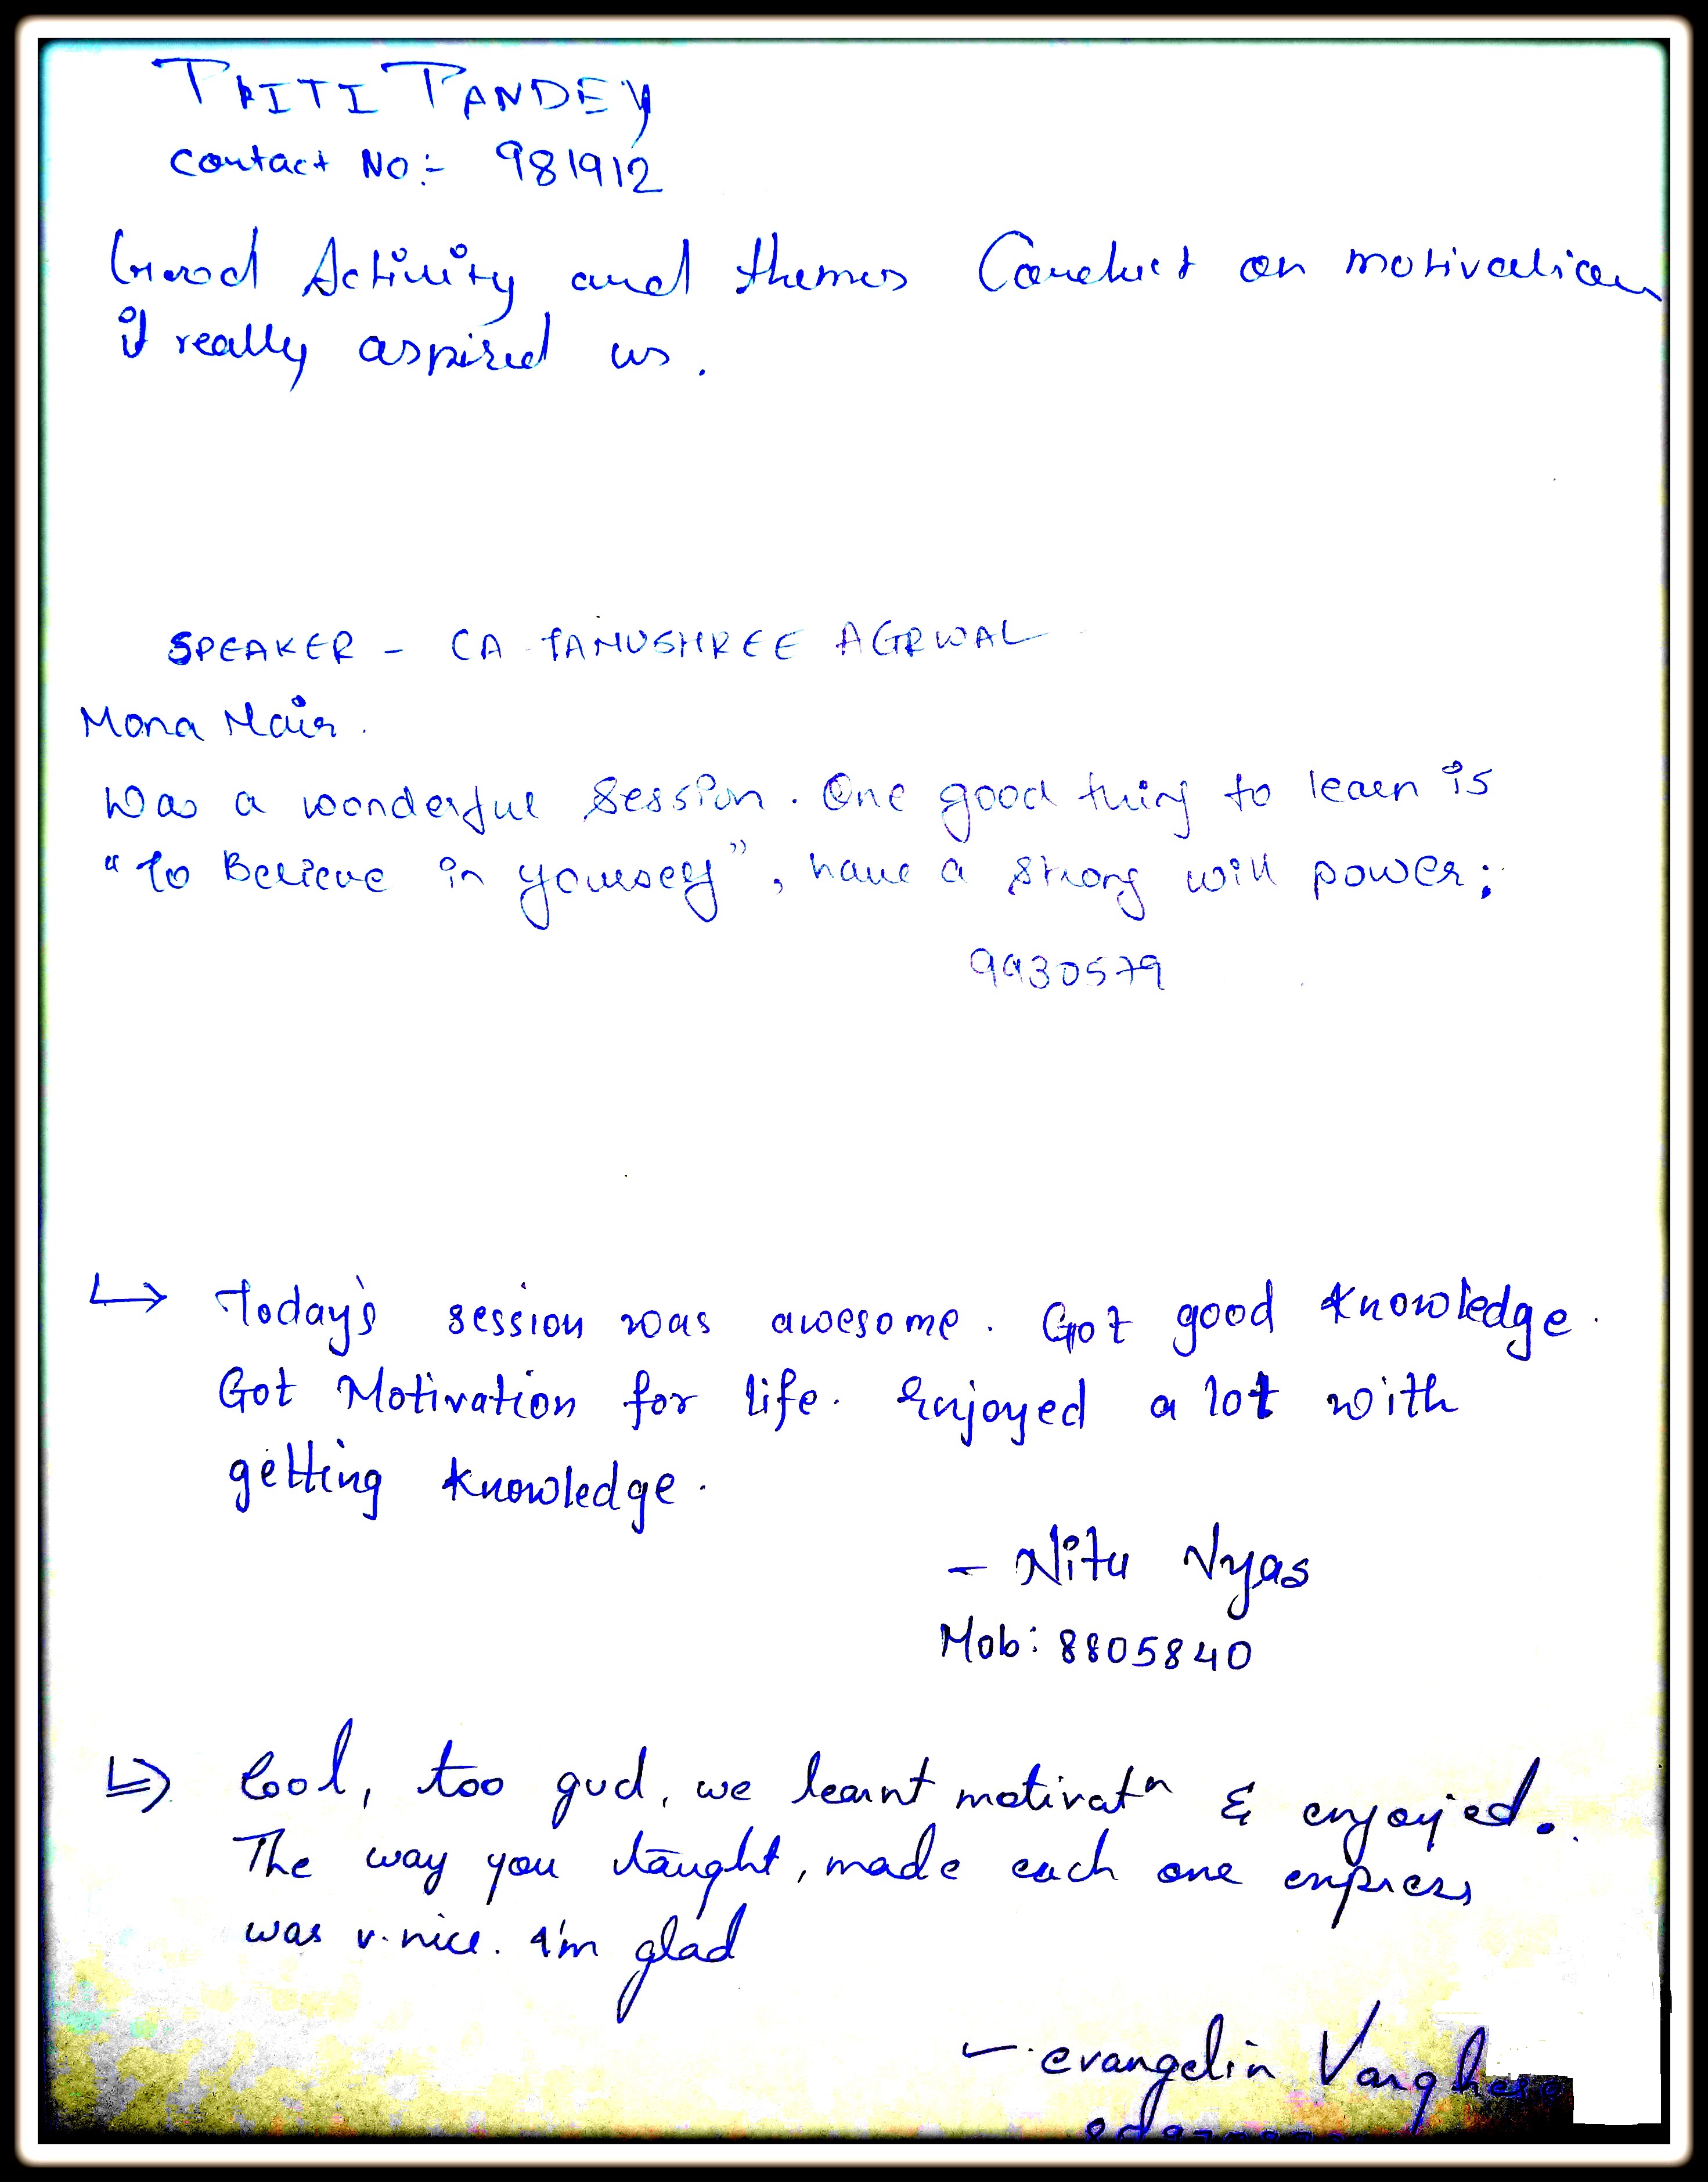 PRITI PANDEY
Contact No:- 981912
Good Activity and themes Conduct on motivation
it really aspired us.
SPEAKER - CA TANUSHREE AGRWAL
Mona Nair.
Was a wonderful Session. One good thing to learn is
"To Believe in yourself", have a strong will power;
9930579
↳ Today's session was awesome. Got good knowledge.
Got Motivation for life. Enjoyed a lot with
getting knowledge.
- Nitu Vyas
Mob: 8805840
↳ Cool, too gud, we learnt motivatn & enjoyed.
The way you taught, made each one express
was v. nice. I'm glad
- evangelin Varghese